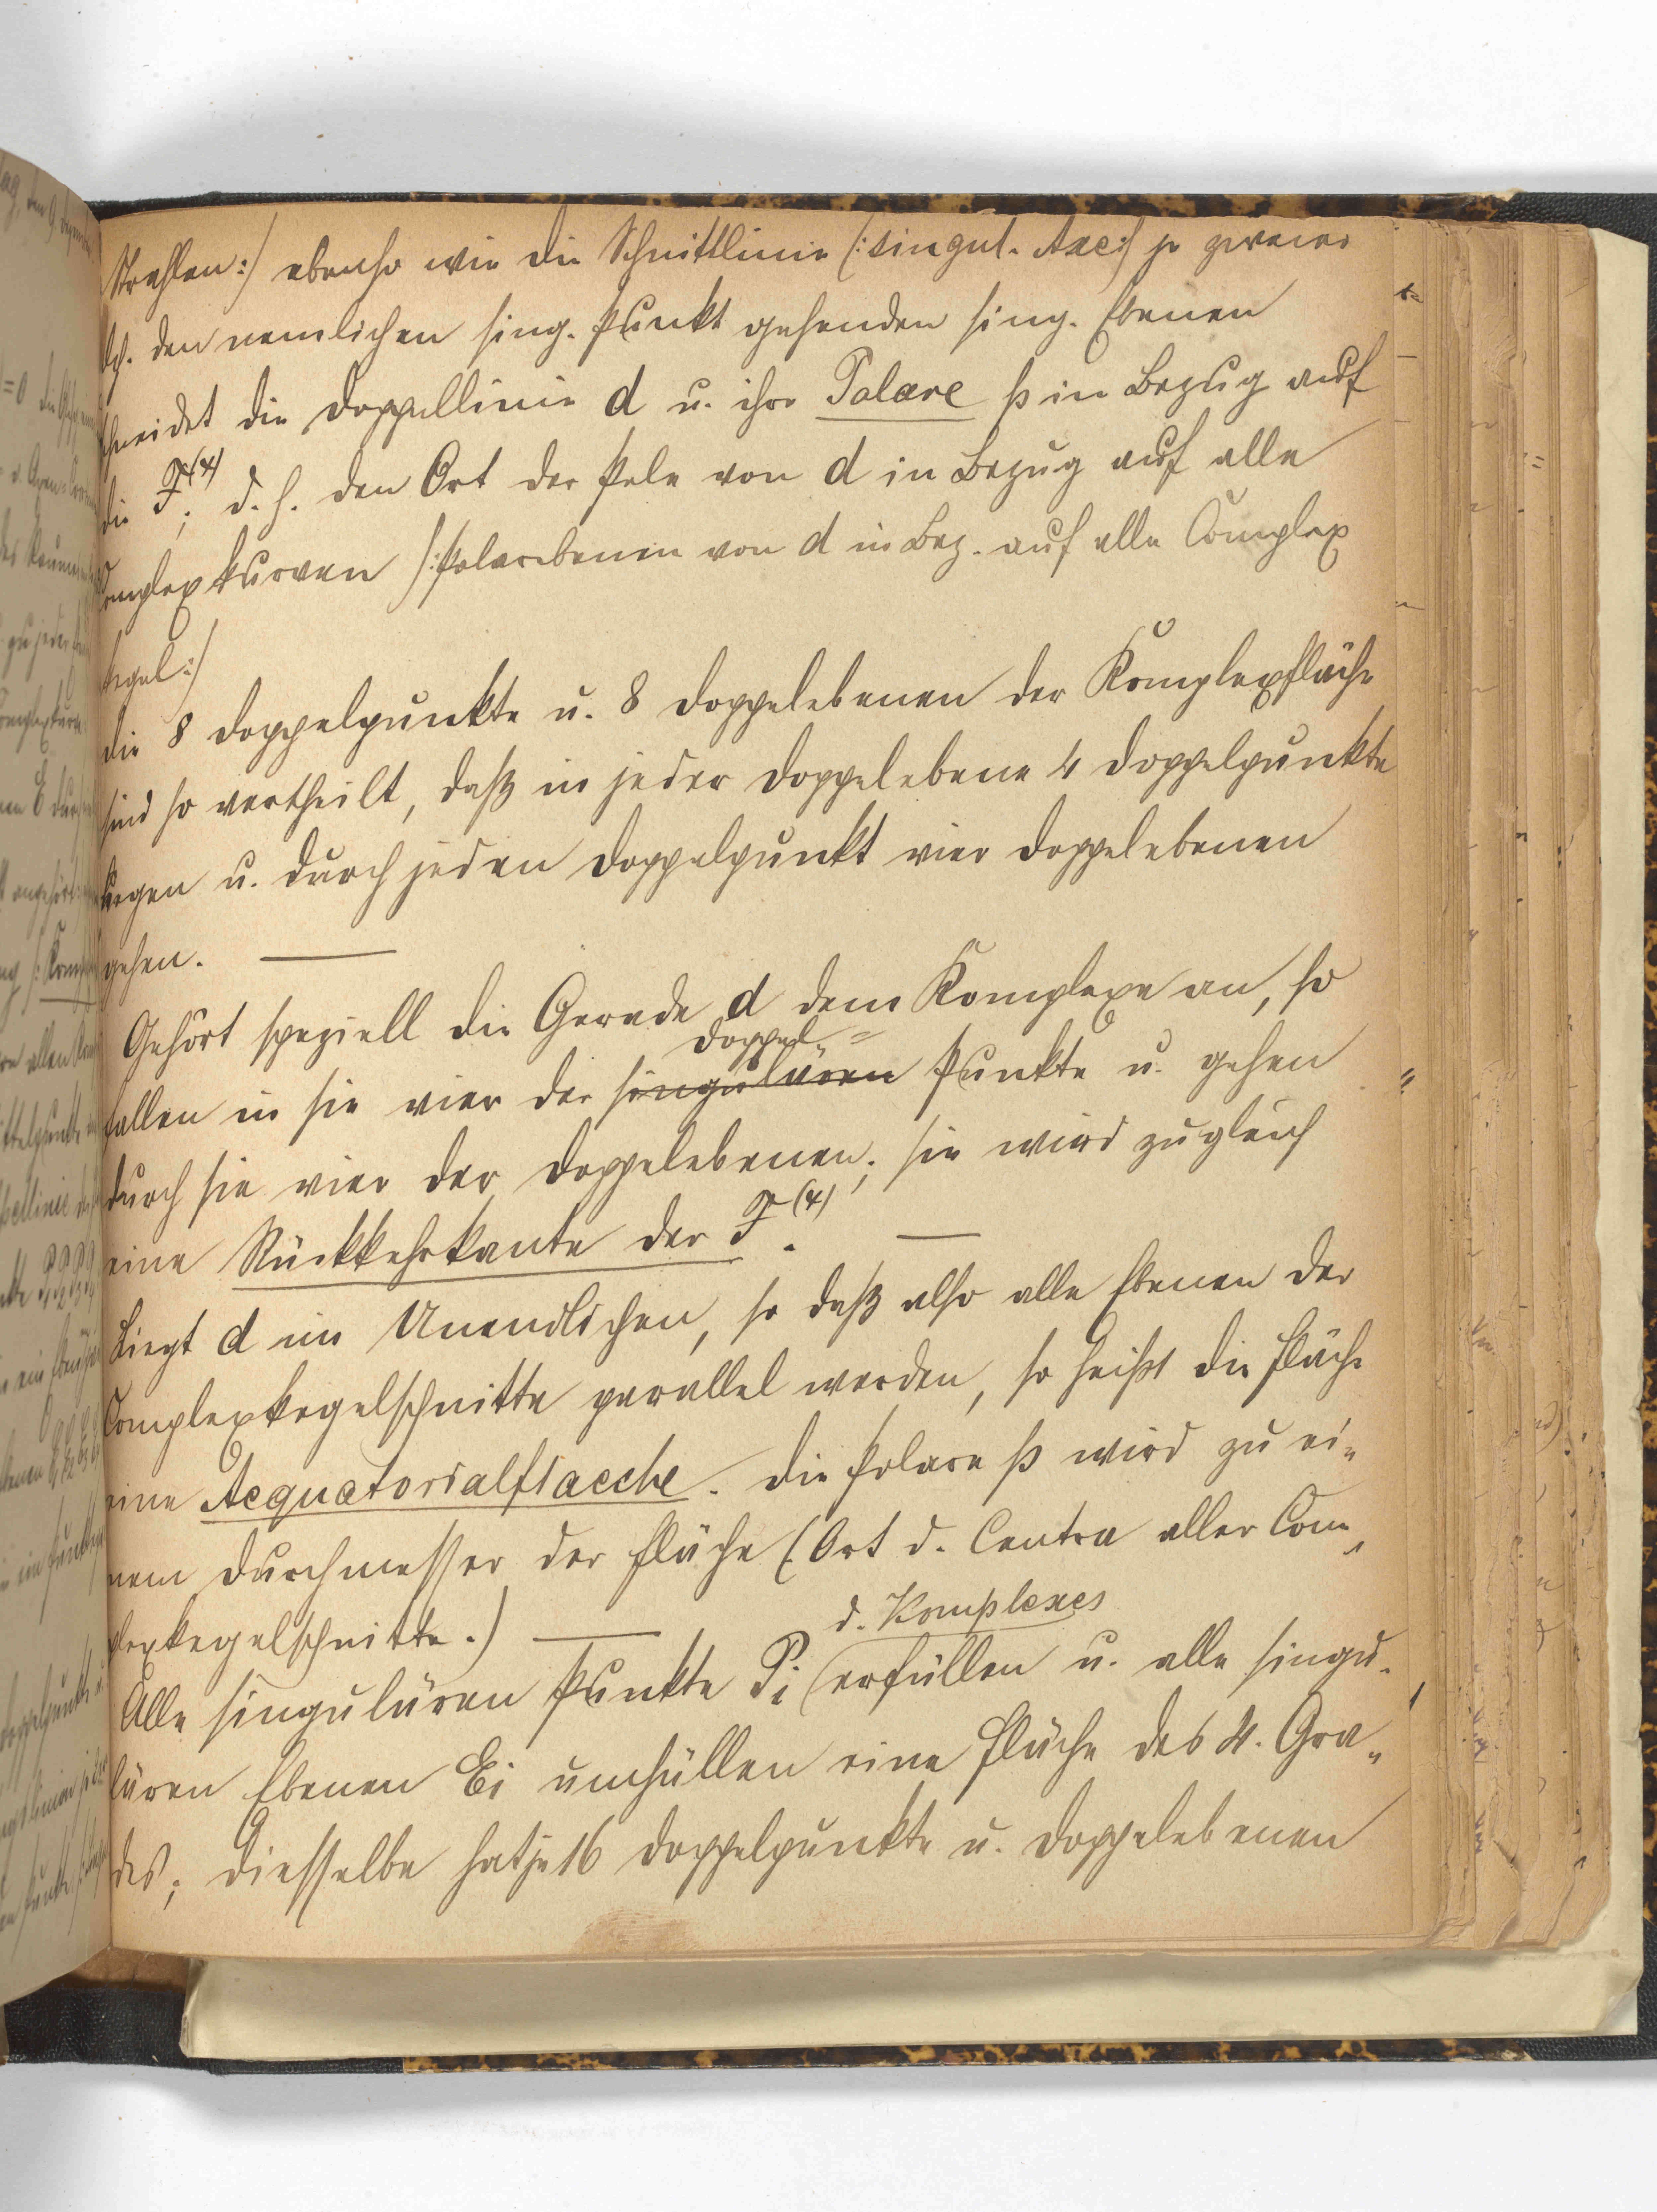 Strahlen:/ ebenso wie die Schnittlinie /:singul. Axe:/ je zweier
dch. den nemlichen sing. Punkt gehenden sing. Ebenen
schneidet die Doppellinie d u. ihre Polare p in Bezug auf
die F⁽⁴⁾; d. h. den Ort der Pole von d in Bezug auf alle
Complexkurven /:Polarebenen von d in Bez. auf alle Complex
kegel:/
Die 8 Doppelpunkte u. 8 Doppelebenen der Komplexfläche
sind so vertheilt, daß in jeder Doppelebene 4 Doppelpunkte
liegen u. durch jeden Doppelpunkt vier Doppelebenen
gehen. —
Gehört speziell die Gerade d dem Komplexe an, so
Doppel=
fallen in sie vier der singulären Punkte u. gehen
durch sie vier der Doppelebenen; sie wird zugleich
eine Rückkehrkante der F⁽⁴⁾. —
Liegt d im Unendlichen, so daß also alle Ebenen der
Complexkegelschnitte parallel werden, so heißt die Fläche
eine Aequatorialflaeche. Die Polare p wird zu ei=
nem Durchmesser der Fläche (: Ort d. Centra aller Com=
plexkegelschnitte.) —
d. Komplexes
Alle singulären Punkte Pi erfüllen u. alle singu-
lären Ebenen Ei umhüllen eine Fläche des 4. Gra=
des; diesselbe hat je 16 Doppelpunkte u. Doppelebenen